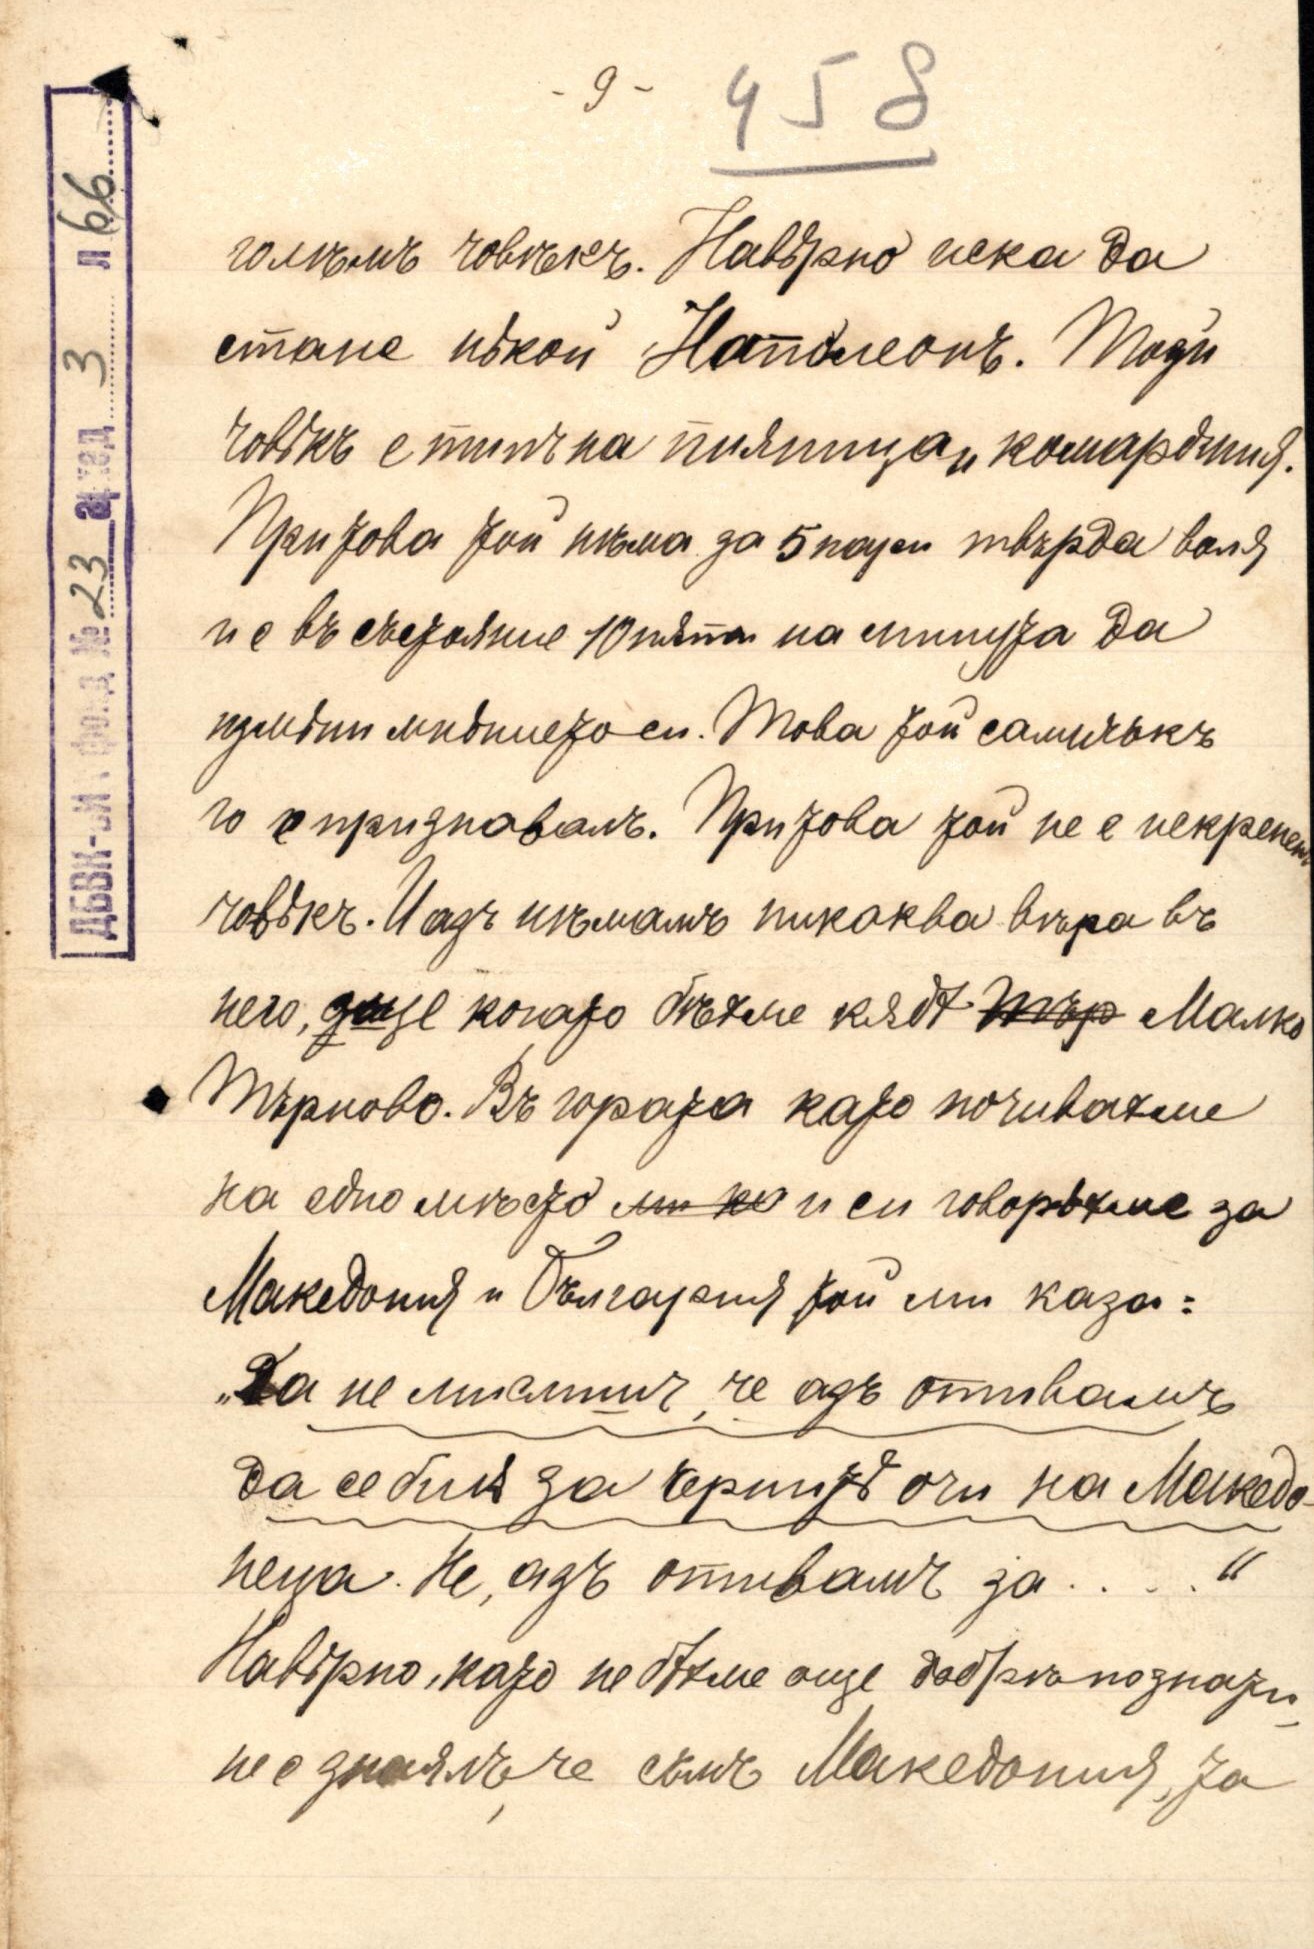 - 9 -
458
ДБВК-ЗИ фонд № 23 а.ед. 3 л 66
голѣмъ човѣкъ. Навѣрно иска да
стане нѣкой Наполеонъ. Тоди
човѣкъ е типична пияница и комарджия.
При това той нѣма за 5 пари твърда воля
и е въ състояние 10 пяти на минута да
измѣни мнѣнието си. Това той самичъкъ
го е признавалъ. При това той не е искрененъ
човѣкъ. И азъ нѣмамъ никаква вѣра въ
него, още когато бѣхме кядѣ Тър Малко
Търново. Въ гората като почивахме
на едно мѣсто ми ка и си говорѣхме за
Македония и България той ми каза:
„Да не мислишъ, че азъ отивамъ
да се бия за чернитѣ очи на Македо-
неца. Не, азъ отивамъ за . . . . "
Навѣрно, като не бѣхме още добрѣ познати,
не е знаялъ, че съмъ Македония, та